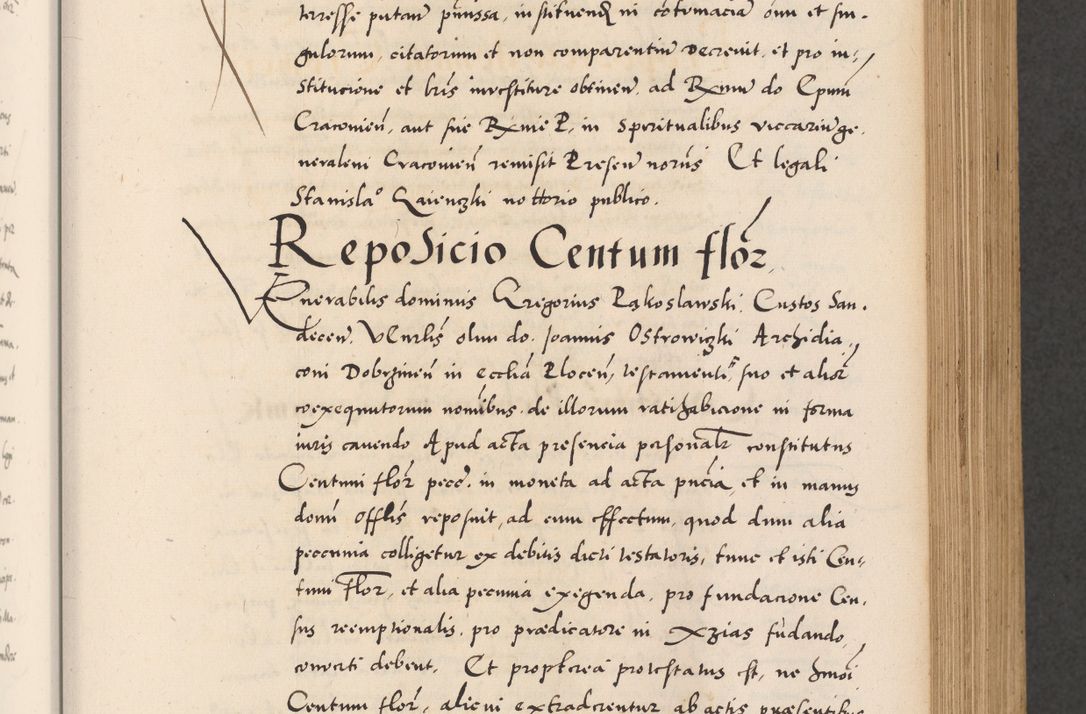 terresse putavit premissa, in stituendum in cotumacia omnium et sin-
gulorum, citatorum et non comparentium decrevit, et pro in-
stitucione et lris investiture obtinen ad Rxmum do Epum
Cracovien, aut sue Rxmie P. in Spiritualibus viccarium ge-
neralem Cracovien remisit Presen norus Et legali
Stanislao Gaienczki nottorio publico.
Reposicio Centum flor
Venerabilis dominus Gregorius Rąkoslawski, Custos San-
decen, V Curlis olim do. Joannis Ostrowizki Archidia-
coni Dobrzinen in ecclia Plocen, testamenti suo et alior
coexequutorum nomibus, de illorum ratihabicione in forma
iuris cavendo Apud acta presencia personalr constitutus
Centum flor pecc. in moneta ad acta pncia, et in manus
domi Offlis reposuit, ad eum effectum, quod dum alia
peccunia colligetur ex debitis dicti testatoris, tunc et isti Cen-
tum Flor, et alia pecunia exegenda, pro fundacione Cen-
sus reemptionalis, pro prædicatore in Xzias fudando,
converti debent, Et propterea protestatus est, ne hmoi
Centum flor, alicui extradcrentur ab actis præsentibus